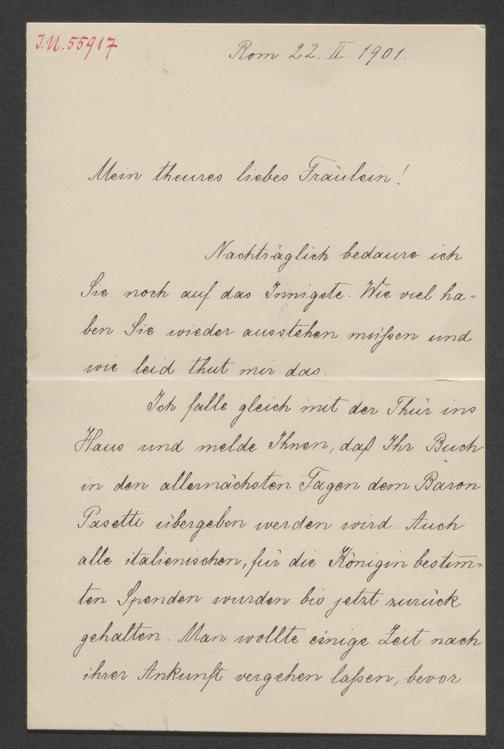 J.N. 55917
Rom 22. II. 1901.
Mein theures liebes Fräulein!
Nachträglich bedaure ich
Sie noch auf das Innigste. Wie viel ha-
ben Sie wieder ausstehen müßen und
wie leid thut mir das.
Ich falle gleich mit der Thür ins
Haus und melde Ihnen, daß Ihr Buch
in den allernächsten Tagen dem Baron
Pasetti übergeben werden wird. Auch
alle italienischen, für die Königin bestim̄-
ten Spenden wurden bis jetzt zurück
gehalten. Man wollte einige Zeit nach
ihrer Ankunft vergehen laßen, bevor